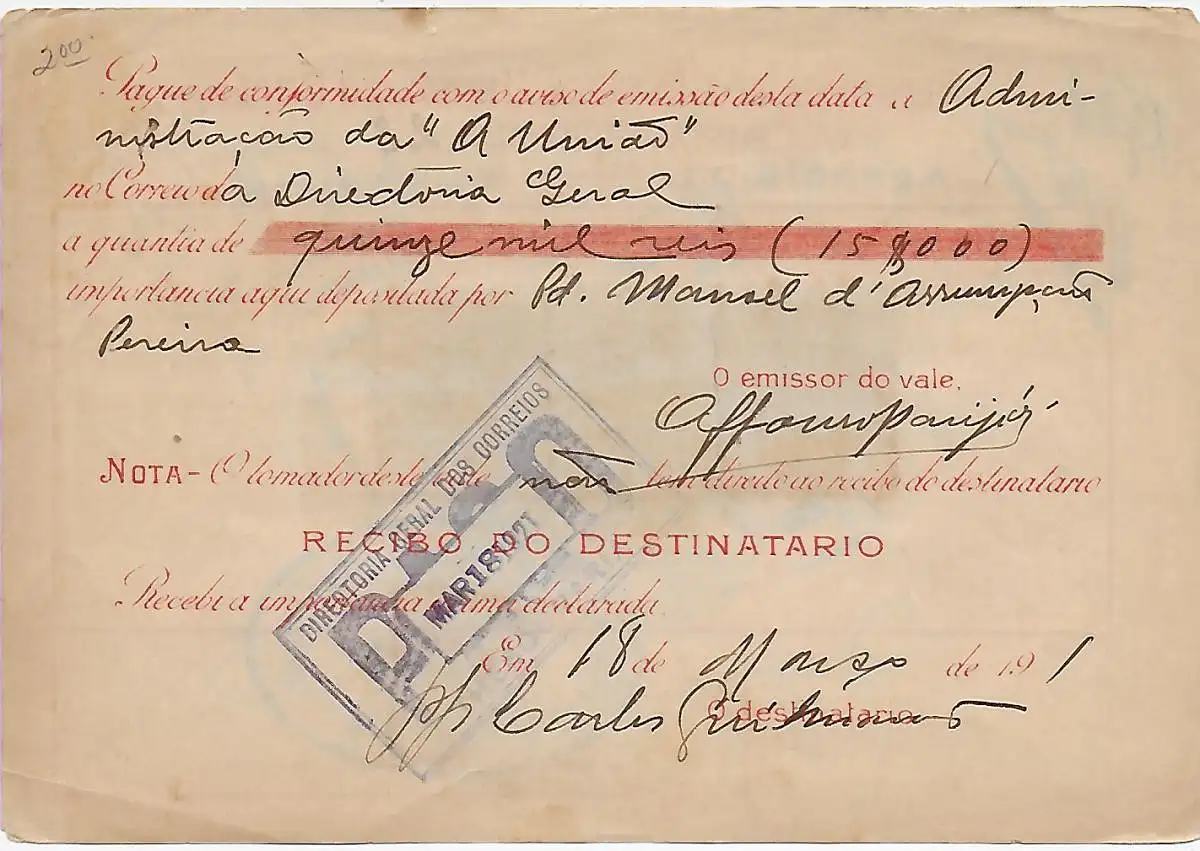 200
Pague de conformidade com o aviso de emissão desta data a Admi-
nistração da "A União"
no Correio da Directoria Geral
a quantia de quinze mil reis (15$000)
importancia aqui depositada por Pd. Manoel d'Assumpção
Pereira
O emissor do vale,
NOTA - O tomador deste não tem direito ao recibo do destinatario
DIRECTORIA GERAL DOS CORREIOS
MAR 18 1921
RECIBO DO DESTINATARIO
Recebi a importancia acima declarada.
Em 18 de Março de 191
O destinatario
pp Carlos